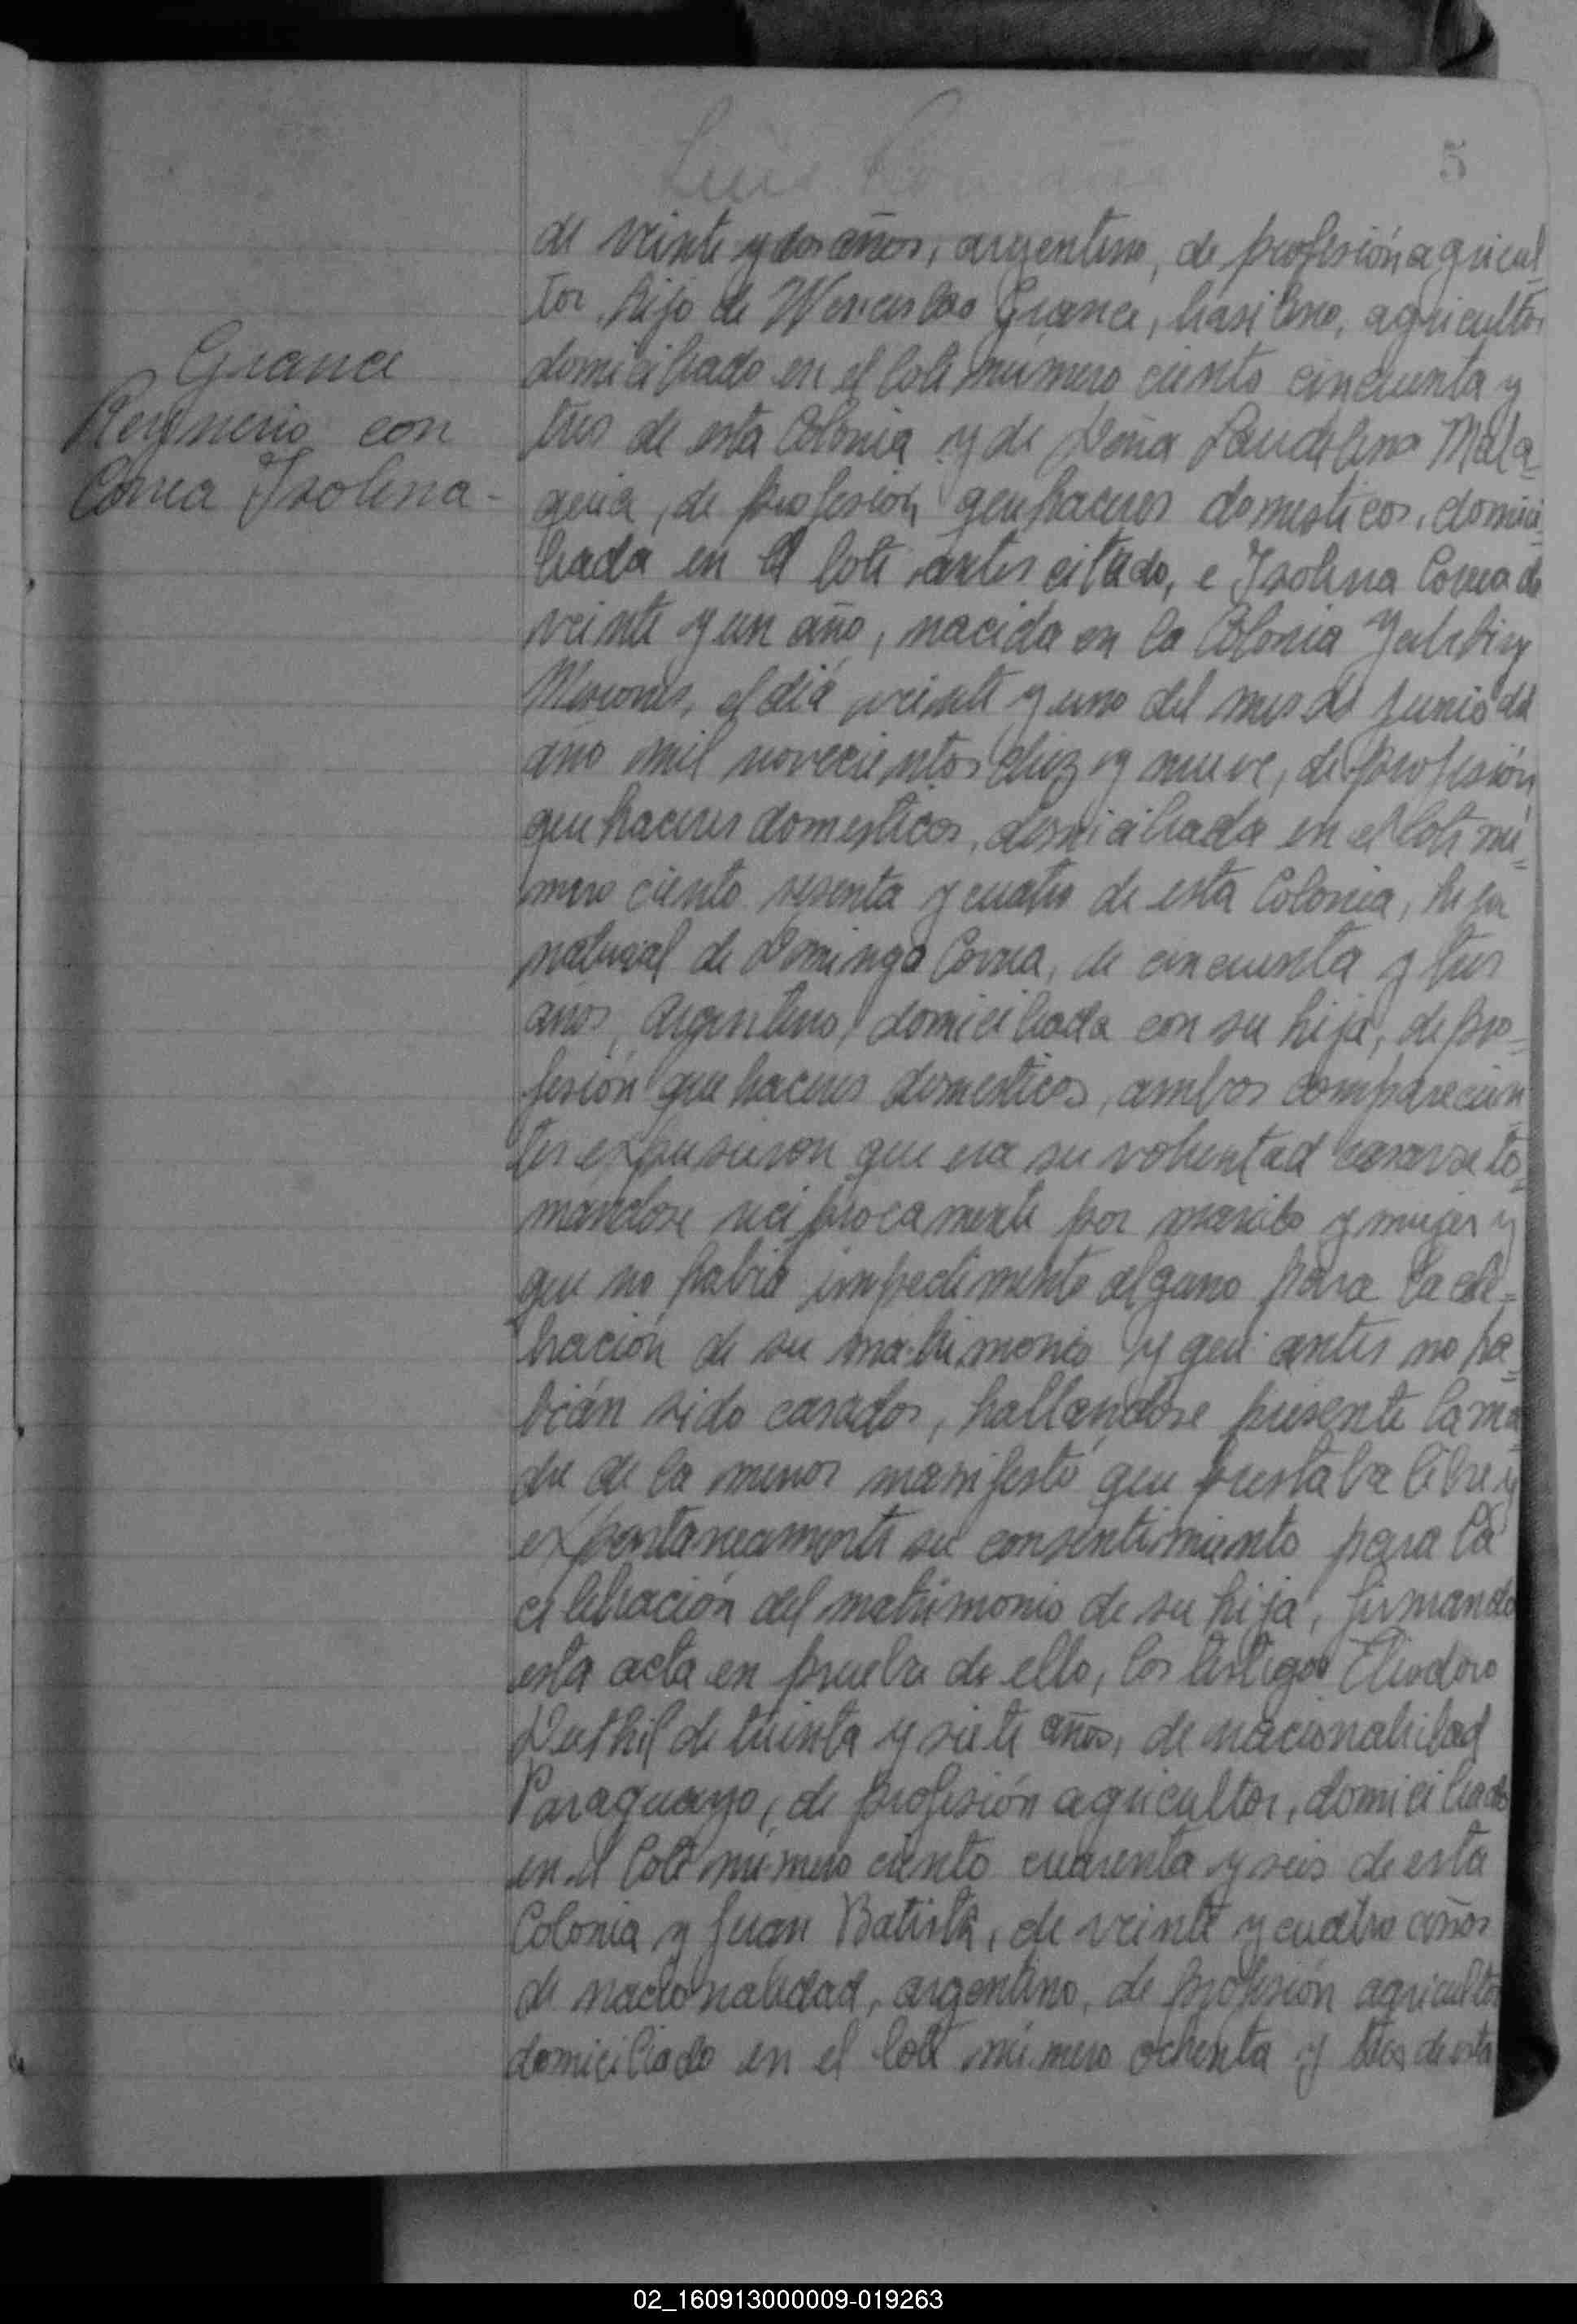 5
de veinte y dos años, argentino, de profesión agricul=
tor, hijo de Wenceslao Grance, brasilero, agricultor
domiciliado en el lote número ciento cincuenta y
tres de esta Colonia y de Doña Laudelina Mala=
queia, de profesión quehaceres domesticos, domici=
liada en el lote antes citado, e Isolina Correa de
veinte y un año, nacida en la Colonia Yabebiry
Misiones, el diá veinte y uno del mes de junio del
año mil novecientos diez y nueve, de profesión
quehaceres domesticos, domiciliada en el lote nú=
mero ciento sesenta y cuatro de esta Colonia, hija
natural de Dominga Correa, de cincuenta y tres
años, Argentina, domiciliada con su hija, de pro=
fesión quehaceres domesticos, ambos comparecien=
tes expusieron que era su voluntad casarse to=
mandose reciprocamente por marido y mujer y
que no habiá impedimento alguno para la cele=
bración de su matrimonio y que antes no ha=
bián sido casados, hallandose presente la ma=
dre de la menor manifestó que prestaba libre y
expontaneamente su consentimiento para la
celebración del matrimonio de su hija, firmando
esta acta en prueba de ello, los testigos Eliodoro
de treinta y siete años, de nacionalidad
Paraguayo, de profesión agricultor, domiciliado
en el lote número ciento cuarenta y seis de esta
Colonia y Juan Batista, de veinte y cuatro años
de nacionalidad, argentino, de profesión agricultor
domiciliado en el lote número ochenta y tres de esta
Grance
con
Correa Isolina-
02_160913000009-019263